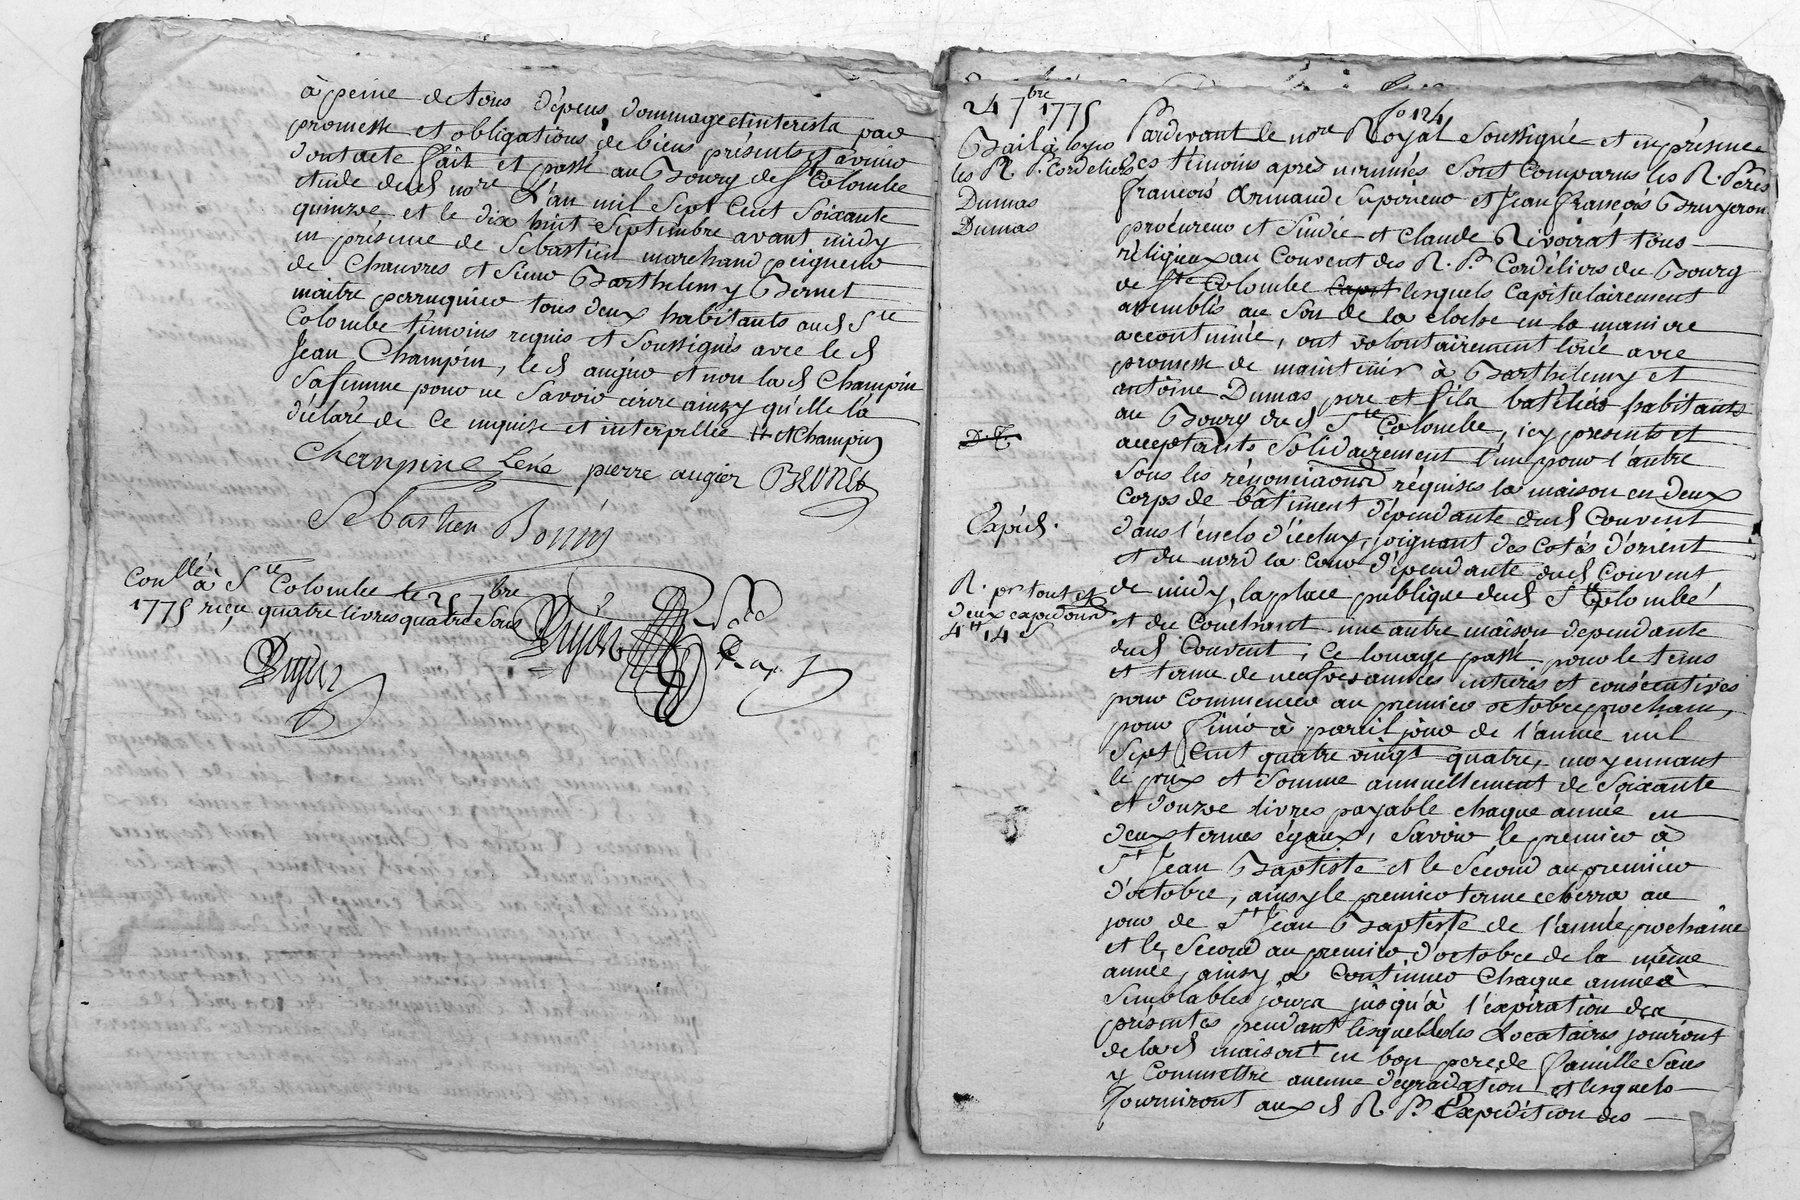 à peine de tous dépens, dommage et interests par
promesse et obligations de biens présents et avenir
dont acte fait et passé au Bourg de Ste Colombe
étude dud nore L'an mil Sept Cent Soixante
quinze et le dix huit Septembre avant midy
en présence de Sébastien marchand peigneur
de Chanvres et Sieur Barthelemy Bernet
maitre perruquier tous deux habitants aud Ste
Colombe témoins requis et Soussignés avec le d
Jean Champin, le d augier et non la d Champin
Sa femme pour ne Savoir écrire ainsy qu'elle l'a
déclaré de ce enquise et interpellée # et Champin
Champin René pierre augier BERNET
Sebastien Bonin
Conllé à Ste Colombe le 25 7bre
1775 reçu quatre livres quatre Sous
24 7bre 1775
Bail à loyer
les R. P. Cordeliers
Dumas
Dumas
Expéd.
R. pr tout et
deux expedions
4# 14 s
fo 124
Pardevant le nore Royal Soussigné et en présence
des témoins après nommés Sont Comparus les R. Pères
françois Armand Supérieur et Jean françois Bruyeron
procureur et Sindic et Claude Rivoirat tous
réligieux au Couvent des R. P. Cordéliers du Bourg
de Ste Colombe Capit lesquels Capitulairement
assemblés au Son de la cloche en la maniere
accoutumée, ont volontairement loué avec
promesse de maintenir à Barthelemy et
antoine Dumas pere et fils bateliers habitants
au Bourg dud Ste Colombe, icy présents et
acceptants Solidairement l'un pour l'autre
Sous les rénonciaons réquises la maison en deux
Corps de bâtiment dépendante dud Couvent
dans l'enclos d'icelux, joignant des cotés d'orient
et du nord la Cour dépendante dud Couvent
de midy, la place publique dud Ste Colombe
et du Couchant une autre maison dépendante
dud Couvent, Ce louage passé pour le tems
et terme de neuf années entieres et consécutives
pour commencer au premier octobre prochain,
pour finir à pareil jour de l'année mil
Sept Cent quatre vingt quatre, moyennant
le prix et Somme annuellement de Soixante
et douze livres payable chaque année en
deux termes égaux, Savoir le premier à
St Jean Baptiste et le Sécond au premier
d'octobre, ainsy le premier terme echerra au
jour de St Jean Baptiste de l'année prochaine
et le Sécond au premier d'octobre de la même
année, ainsy a Continuer Chaque année à
Semblables jours jusqu'à l'expiration des
présentes pendant lesquelles les Locataires jouiront
de la d maison en bon pere de famille Sans
y Commettre aucune dégradation et lesquels
fourniront aux d R. P. Expédition des